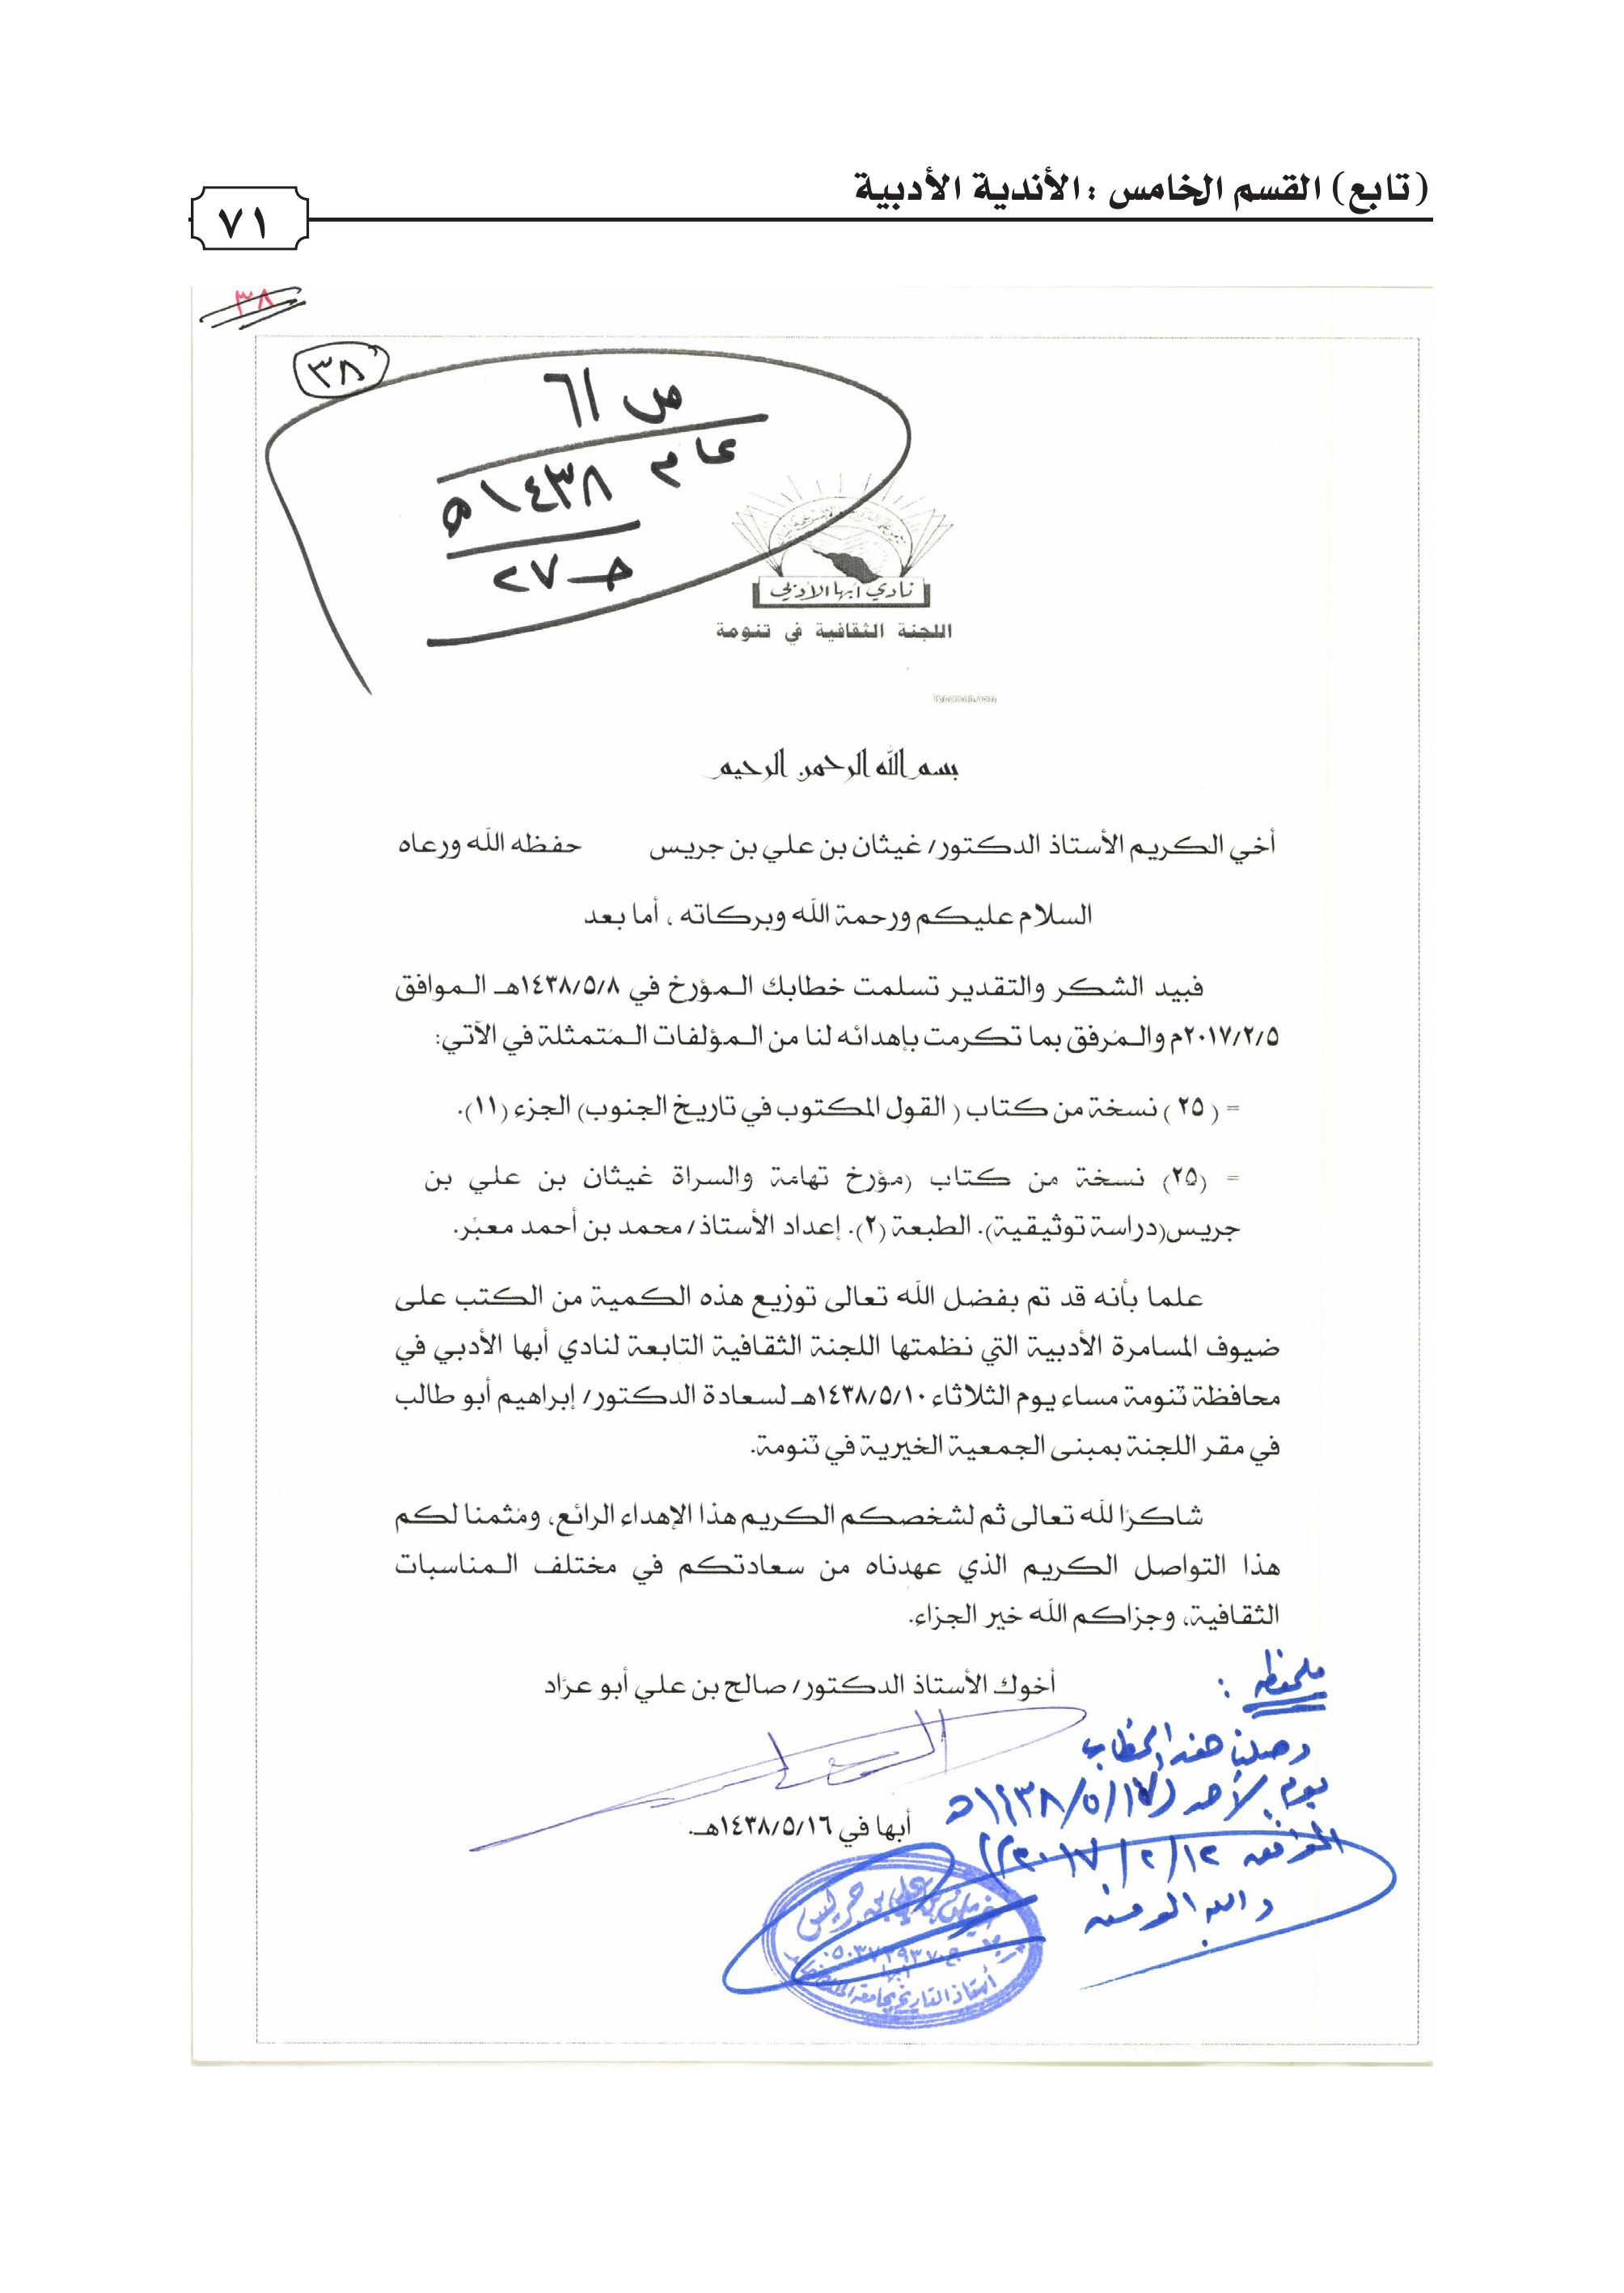 (تابع) القسم الخامس : الأندية الأدبية
٧١
٣٨
٣٨
ص ٦١
عام ١٤٣٨هـ
حـ ٢٧
نادي أبها الأدبي
اللجنة الثقافية في تنومة
بسم الله الرحمن الرحيم
أخي الكريم الأستاذ الدكتور/ غيثان بن علي بن جريس حفظه الله ورعاه
السلام عليكم ورحمة الله وبركاته ، أما بعد
فبيد الشكر والتقدير تسلمت خطابك المؤرخ في ١٤٣٨/٥/٨هـ الموافق
٢٠١٧/٢/٥م والمُرفق بما تكرمت بإهدائه لنا من المؤلفات المُتمثلة في الآتي:
= ( ٢٥ ) نسخة من كتاب ( القول المكتوب في تاريخ الجنوب) الجزء (١١).
= (٢٥) نسخة من كتاب (مؤرخ تهامة والسراة غيثان بن علي بن
جريس(دراسة توثيقية). الطبعة (٢). إعداد الأستاذ/ محمد بن أحمد معبّر.
علما بأنه قد تم بفضل الله تعالى توزيع هذه الكمية من الكتب على
ضيوف المسامرة الأدبية التي نظمتها اللجنة الثقافية التابعة لنادي أبها الأدبي في
محافظة تنومة مساء يوم الثلاثاء ١٤٣٨/٥/١٠هـ لسعادة الدكتور/ إبراهيم أبو طالب
في مقر اللجنة بمبنى الجمعية الخيرية في تنومة.
شاكرًا لله تعالى ثم لشخصكم الكريم هذا الإهداء الرائع، ومُثمنا لكم
هذا التواصل الكريم الذي عهدناه من سعادتكم في مختلف المناسبات
الثقافية، وجزاكم الله خير الجزاء.
أخوك الأستاذ الدكتور/ صالح بن علي أبو عرَّاد
أبها في ١٤٣٨/٥/١٦هـ.
ملحوظه :
وصلنا هذا الخطاب
يوم الأحد (١٤٣٨/٥/١٧هـ
الموافق ٢٠١٧/٢/١٢م)
والله الموفق
غيثان بن علي بن جريس
أبها
أستاذ التاريخ بجامعة الملك خالد